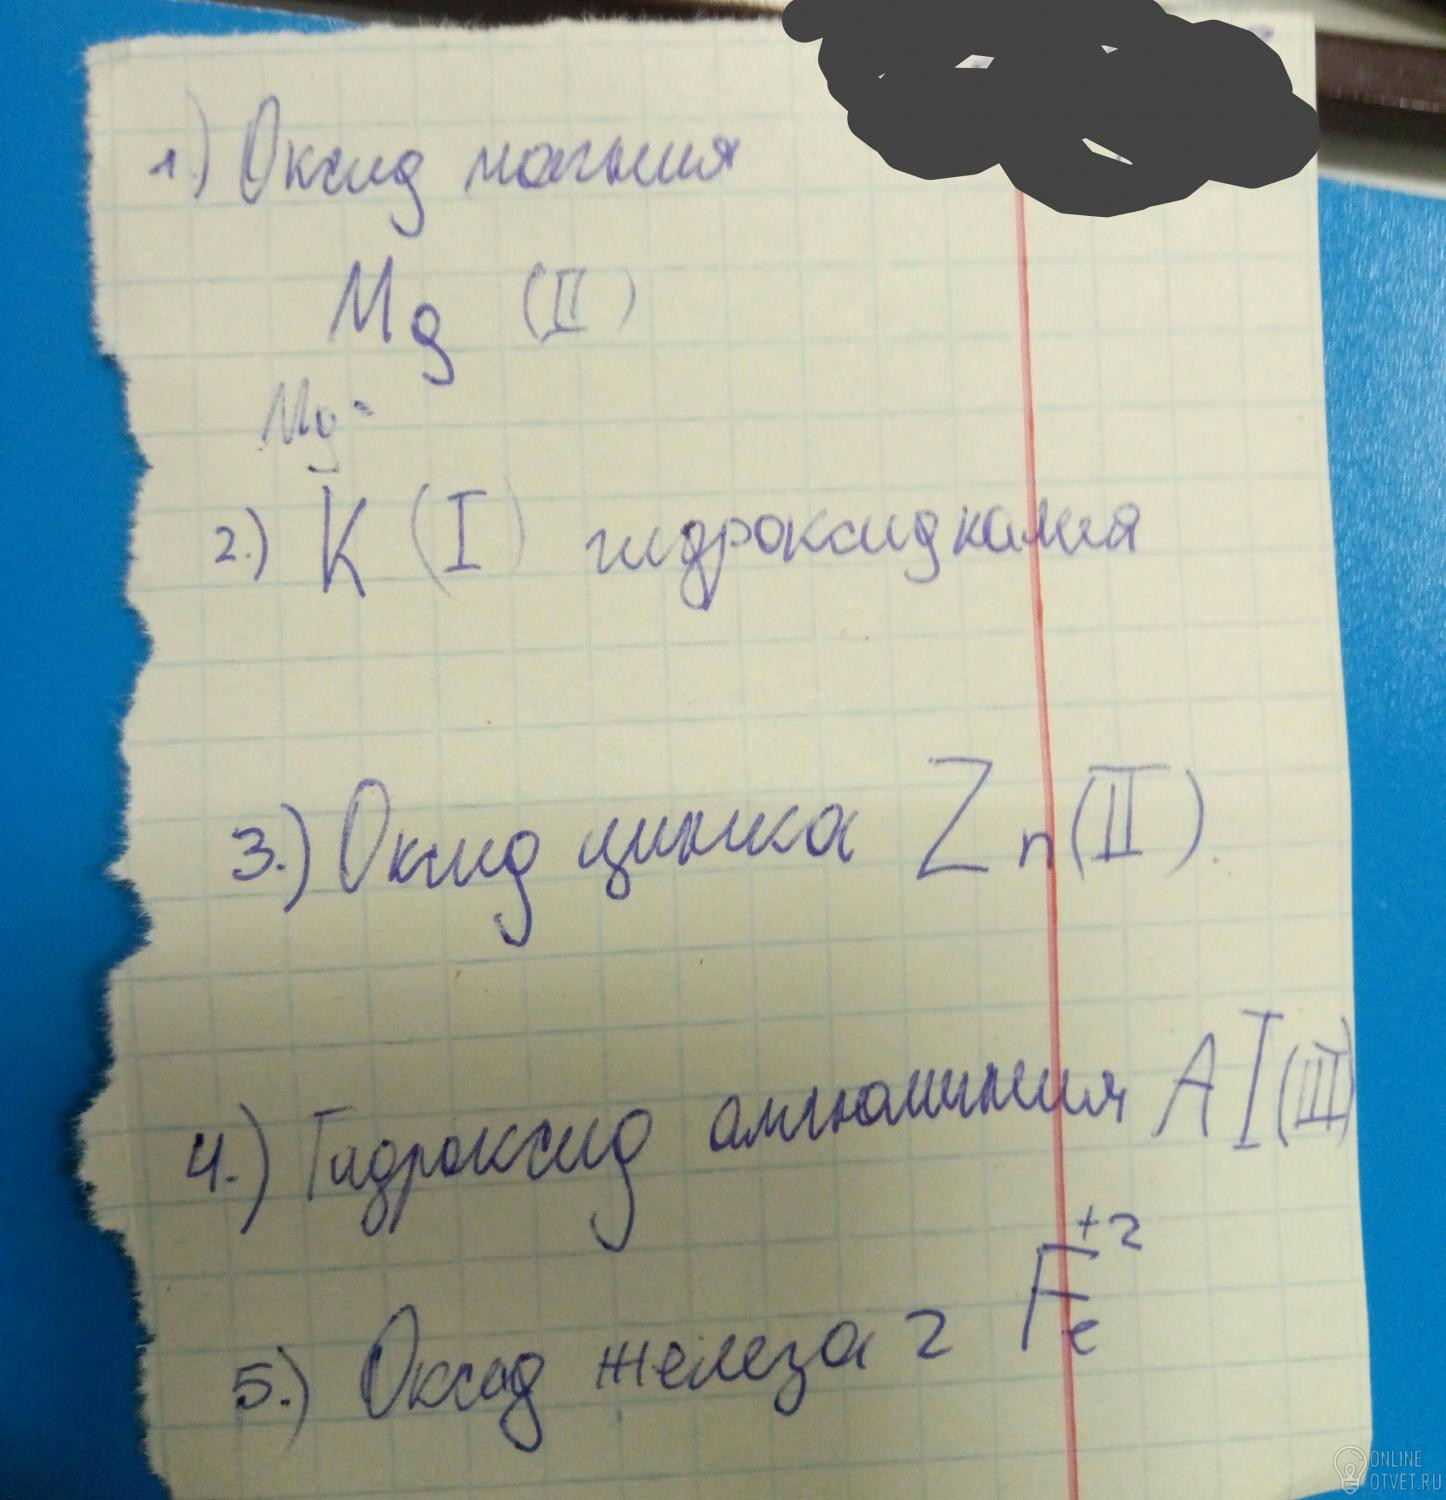 1.) Оксид магния
Mg (II)
Mg
2.) K (I) гидроксид калия
3.) Оксид цинка Zn(II).
4.) Гидроксид алюминия Al(III)
5.) Оксид железа 2 Fe⁺²
ONLINE
OTVET.RU